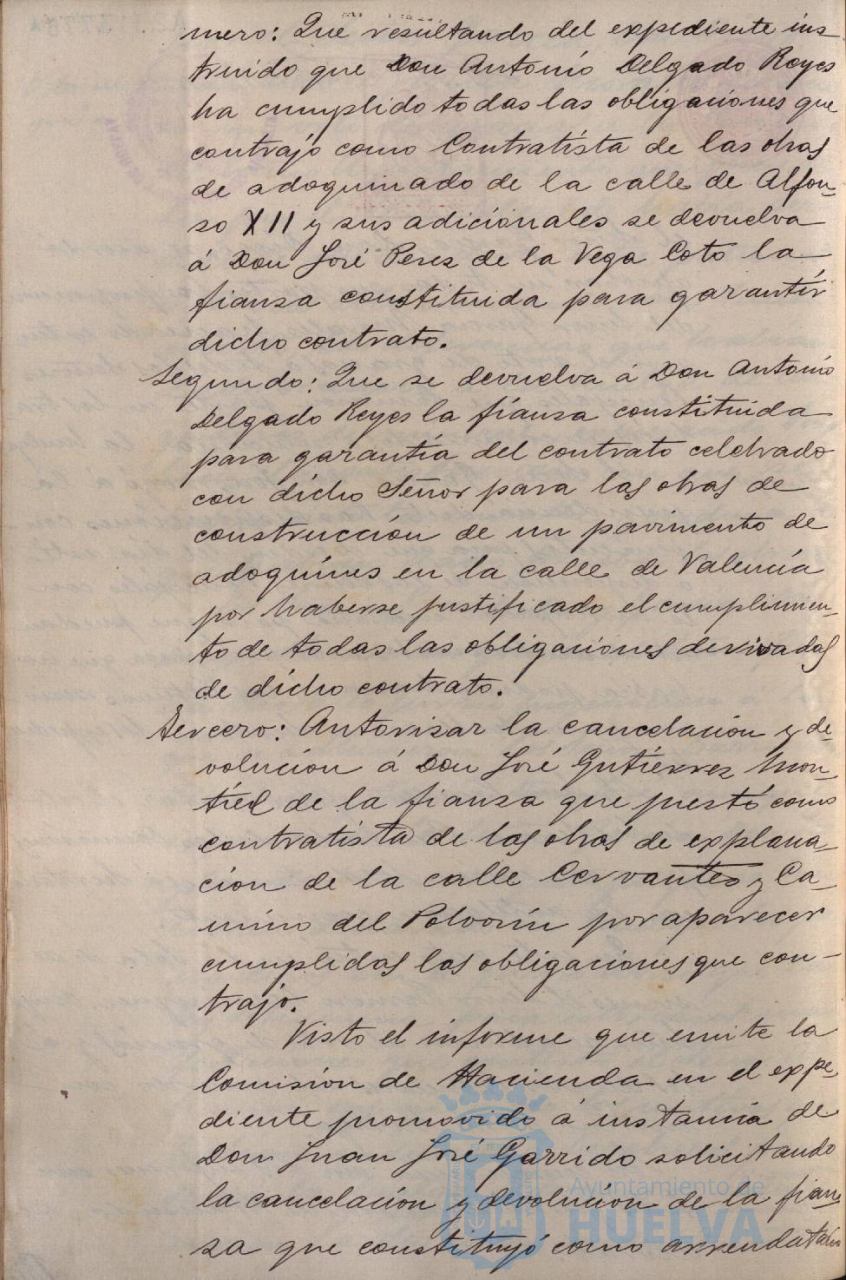 mero: Que resultando del expediente ins
truido que Don Antonio Delgado Reyes
ha cumplido todas las obligaciones que
contrajo como Contratista de las obras
de adoquinado de la calle de Alfon-
so XII y sus adicionales se devuelva
á Don José Perez de la Vega Coto la
fianza constituida para garantir
dicho contrato.
Segundo: Que se devuelva á Don Antonio
Delgado Reyes la fianza constituida
para garantía del contrato celebrado
con dicho Señor para las obras de
construcción de un pavimento de
adoquines en la calle de Valencia
por haberse justificado el cumplimien-
to de todas las obligaciones derivadas
de dicho contrato.
Tercero: Autorizar la cancelación y de-
volución á Don José Gutiérrez Mon-
tiel de la fianza que prestó como
contratista de las obras de explana-
ción de la calle Cervantes y Ca-
mino del Polvorín por aparecer
cumplidas las obligaciones que con-
trajo.
Visto el informe que emite la
Comisión de Hacienda en el expe-
diente promovido á instancia de
Don Juan José Garrido solicitando
la cancelación y devolución de la fian-
za que constituyó como arrendatario
Ayuntamiento de
HUELVA